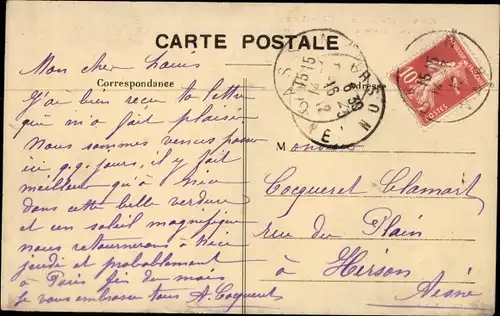 CARTE POSTALE
Correspondance
Adresse
Mon cher Louis
J'ai bien reçu ta lettre
qui m'a fait plaisir
Nous sommes venus passer
ici q.q. jours, il y fait
meilleur qu'à Nice
dans cette belle verdure
et un soleil magnifique
nous retournerons à Nice
jeudi et probablement
à Paris fin du mois
Je vous embrasse tous A. Cocqueret
M
Cocqueret Clamart
rue du Plain
à Hirson
Aisne
10